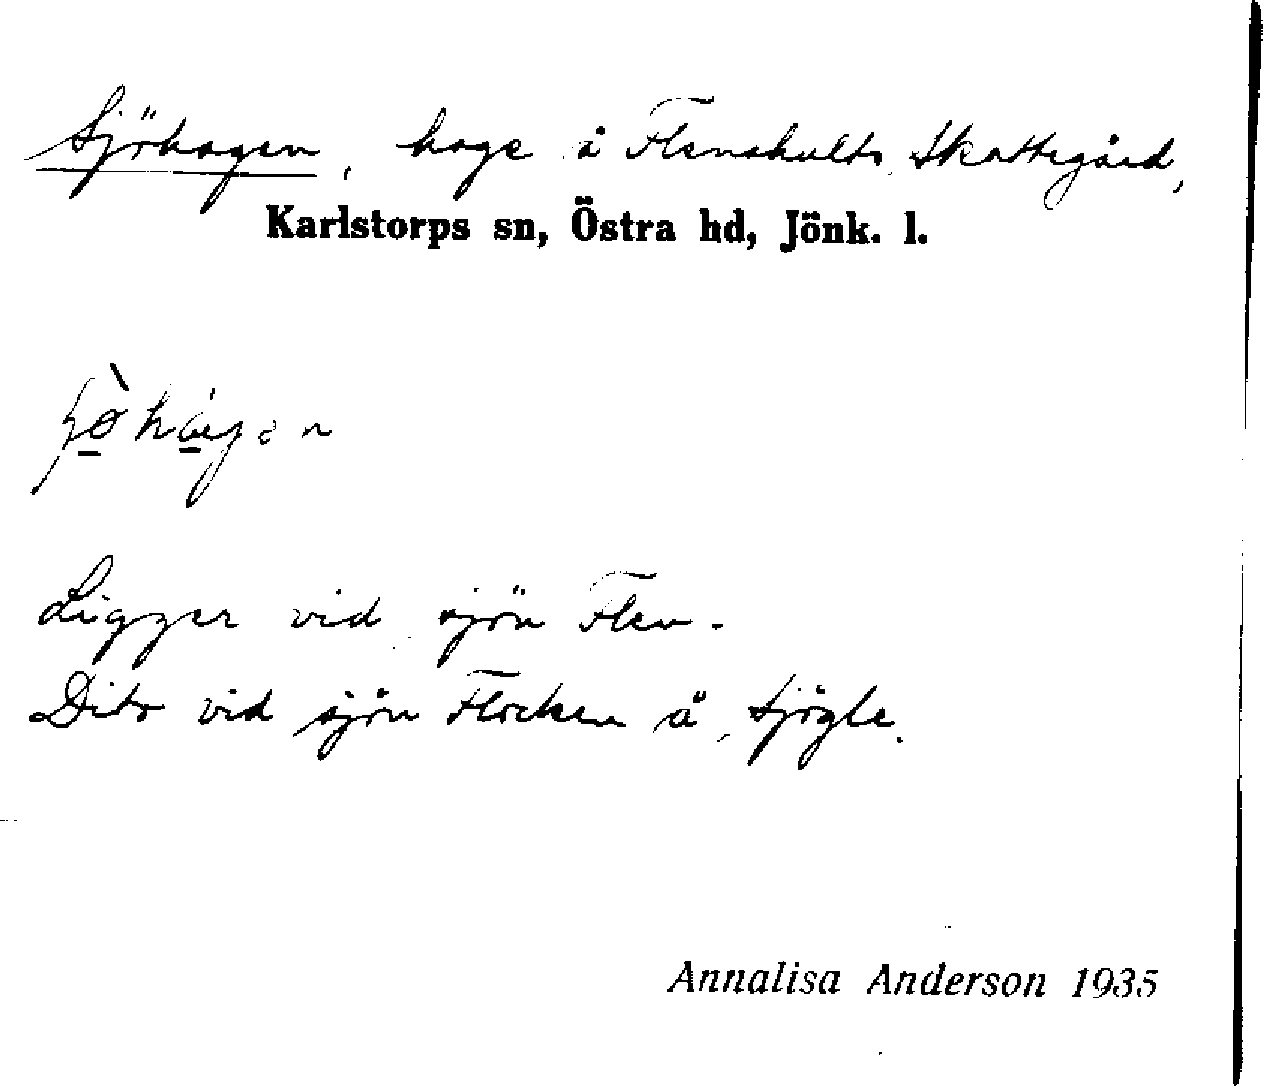 Sjöhagen, hage å Flenshults Skattegård,
Karlstorps sn, Östra hd, Jönk. l.
Ligger vid sjön Flen.
Dito vid sjön Flocken å Sjögle.
Annalisa Anderson 1935